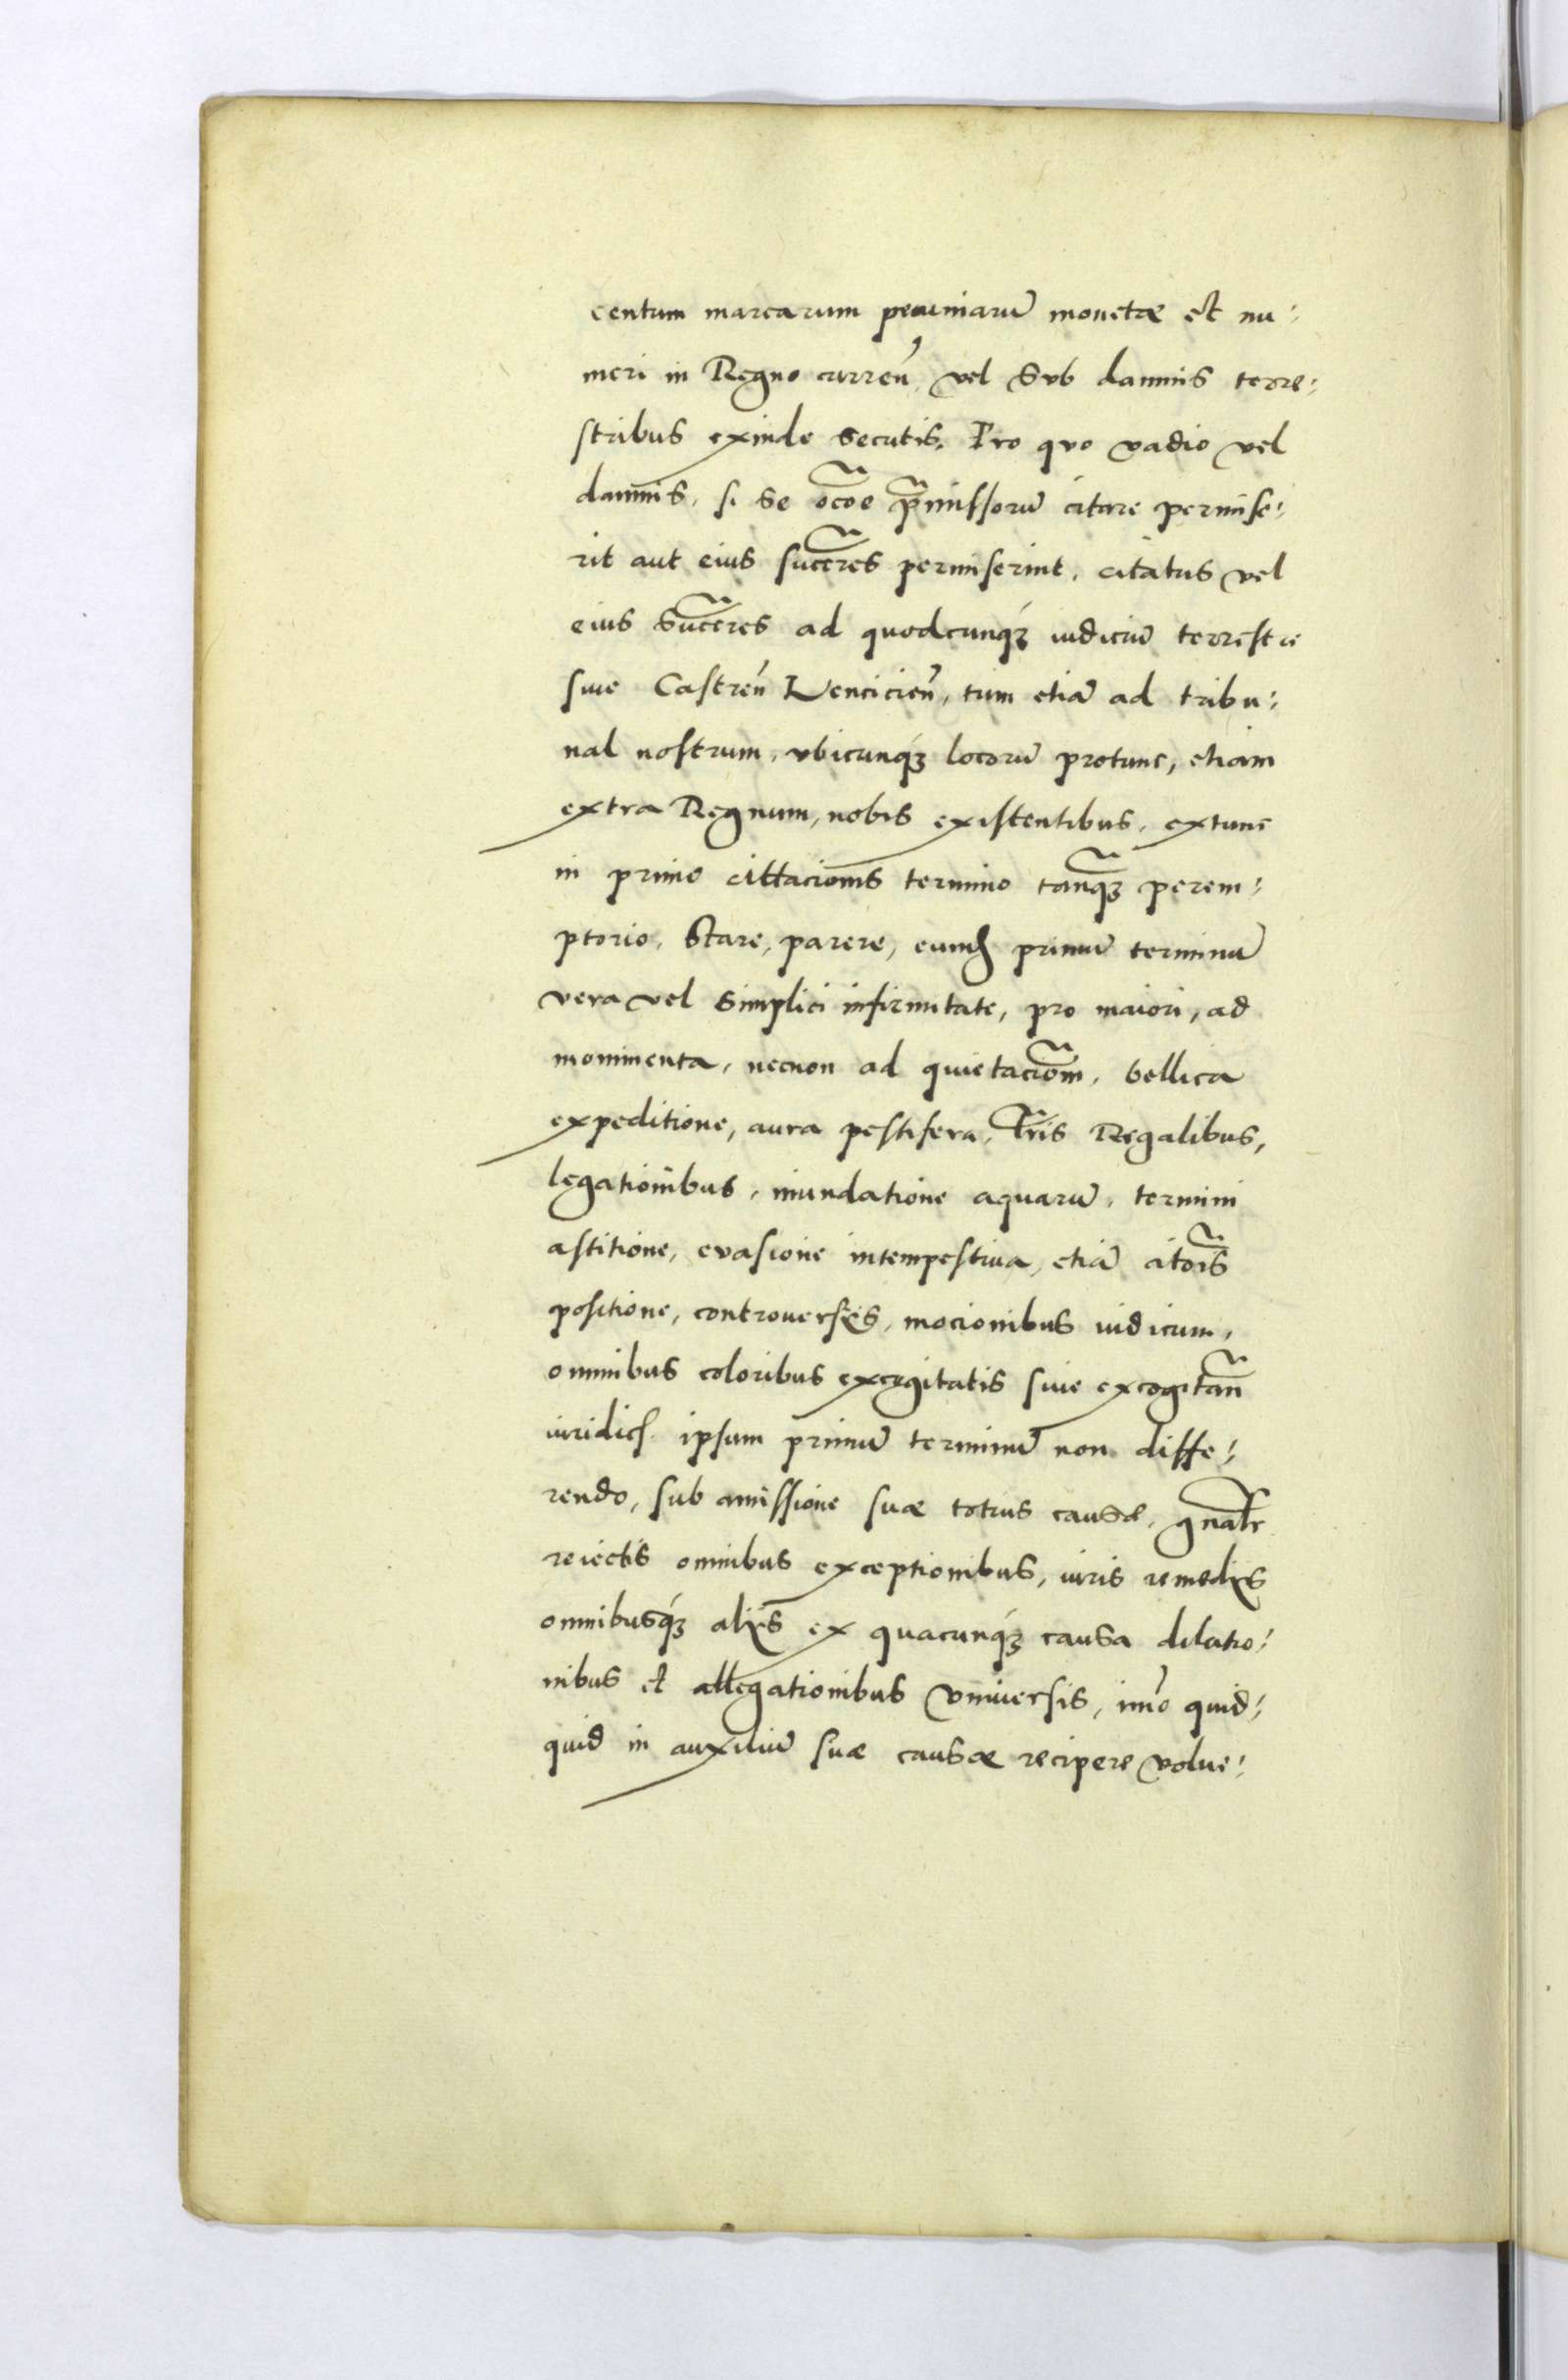 centum marcarum pecuniarū monetæ et nu:
meri in Regno curreñ vel sub damnis terre:
stribus exinde secutis. Pro quo vadio vel
damnis, si se ōcōe p̄missorū citare permise:
rit aut eius succ̄res permiserint, citatus vel
eius succ̄res ad quodcunqȝ iudiciū terrestre
siue Castreñ Lencicieñ, tum etiā ad tribu:
nal nostrum, vbicunqȝ locorū protunc, etiam
extra Regnum, nobis existentibus, extunc
in primo cittacionis termino tanq̄ȝ perem:
ptorio, stare, parere, eumdꝫ primū terminū
vera vel simplici infirmitate, pro maiori, ad
monimenta, necnon ad quietaciōm, bellica
expeditione, aura pestifera, l̄ris Regalibus,
legationibus, inundatione aquarū, termini
astitione, euasione intempestiua, etiā citōis
positione, controuersijs, mocionibus iudicum,
omnibus coloribus excogitatis siue excogitañ
iuridicꝭ ipsum primū terminū non diffe:
rendo, sub amissione suæ totius causæ, gn̄alr
reiectis omnibus exceptionibus, iuris remedijs
omnibusqȝ alijs ex quacunqȝ causa dilatio:
nibus et allegationibus vniuersis, imo quid:
quid in auxiliū suæ causæ recipere volue: